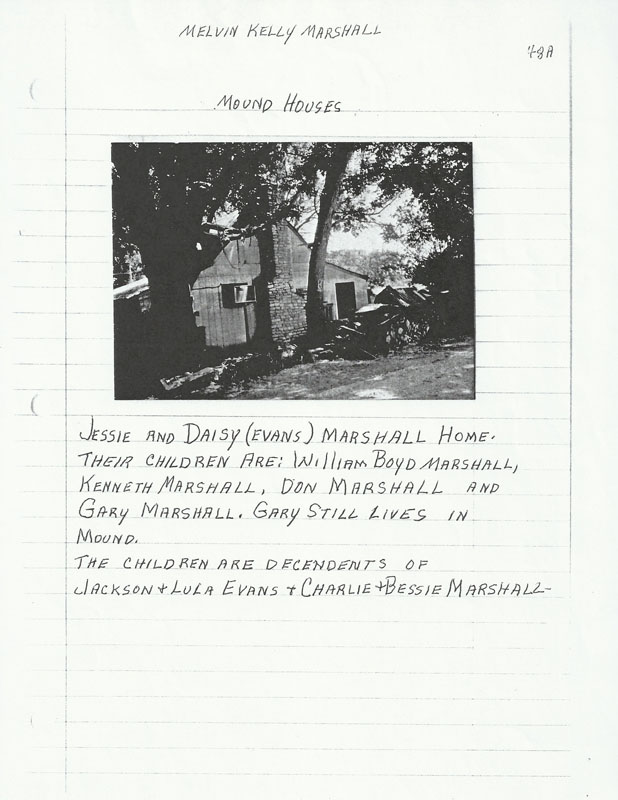 MELVIN KELLY MARSHALL
48A
MOUND HOUSES
JESSIE AND DAISY (EVANS) MARSHALL HOME.
THEIR CHILDREN ARE: WILLIAM BOYD MARSHALL,
KENNETH MARSHALL, DON MARSHALL AND
GARY MARSHALL. GARY STILL LIVES IN
MOUND.
THE CHILDREN ARE DECENDENTS OF
JACKSON + LULA EVANS + CHARLIE + BESSIE MARSHALL-